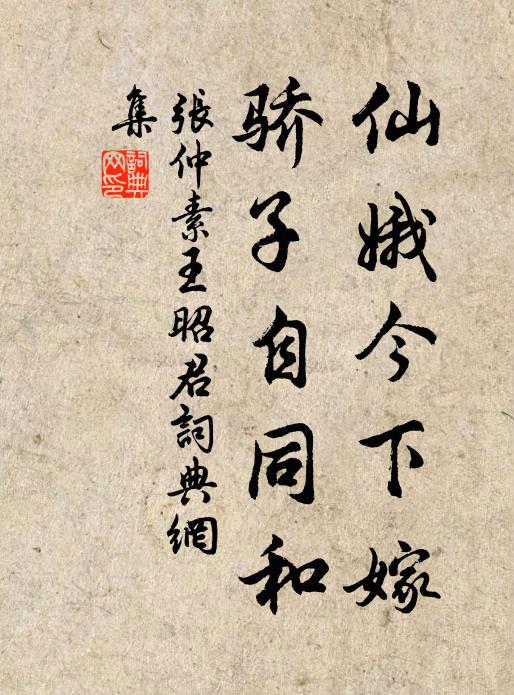 仙娥今下嫁
骄子自同和
張仲素王昭君詞典網
集
詞典网印